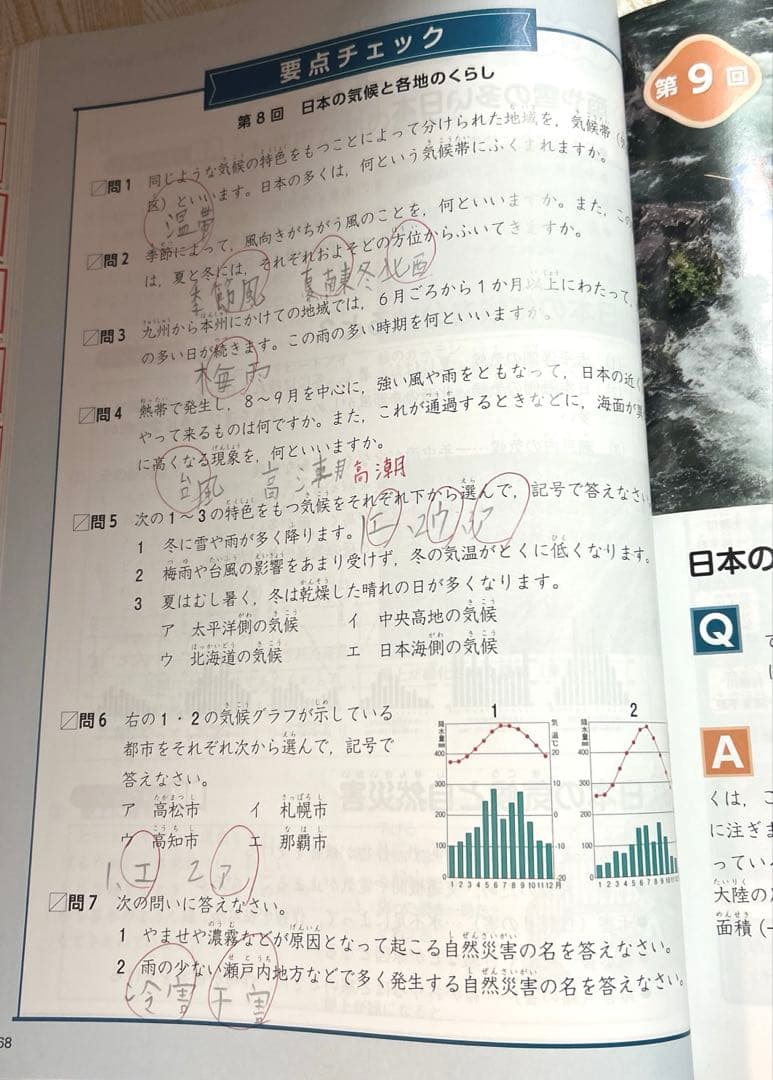 要点チェック
第8回 日本の気候と各地のくらし
問1 同じような気候の特色をもつことによって分けられた地域を,気候帯
区)といいます。日本の多くは,何という気候帯にふくまれますか。
温帯
問2 季節によって,風向きがちがう風のことを,何といいますか。また,この
は,夏と冬には,それぞれおよそどの方位からふいてきますか。
季節風 夏南東冬北西
問3 九州から本州にかけての地域では,6月ごろから1か月以上にわたって,
の多い日が続きます。この雨の多い時期を何といいますか。
梅雨
問4 熱帯で発生し,8〜9月を中心に,強い風や雨をともなって,日本の近く
やって来るものは何ですか。また,これが通過するときなどに,海面が異
に高くなる現象を,何といいますか。
台風 高潮 高潮
問5 次の1〜3の特色をもつ気候をそれぞれ下から選んで,記号で答えなさい
1エ 2ウ 3ア
1 冬に雪や雨が多く降ります。
2 梅雨や台風の影響をあまり受けず,冬の気温がとくに低くなります。
3 夏はむし暑く,冬は乾燥した晴れの日が多くなります。
ア 太平洋側の気候 イ 中央高地の気候
ウ 北海道の気候 エ 日本海側の気候
問6 右の1・2の気候グラフが示している
都市をそれぞれ次から選んで,記号で
答えなさい。
ア 高松市 イ 札幌市
ウ 高知市 エ 那覇市
1、エ 2、ア
1 2
降水量 mm 気温 ℃ 降水量 mm
400 20 400
300 10 300
200 0 200
100 -10 100
0 -20 0
1 2 3 4 5 6 7 8 9 10 11 12月
1 2 3 4 5 6 7 8 9 10 11
問7 次の問いに答えなさい。
1 やませや濃霧などが原因となって起こる自然災害の名を答えなさい。
2 雨の少ない瀬戸内地方などで多く発生する自然災害の名を答えなさい。
冷害 干害
68
第9回
日本の
Q
A
くは,こ
に注ぎま
ってい
大陸の
面積